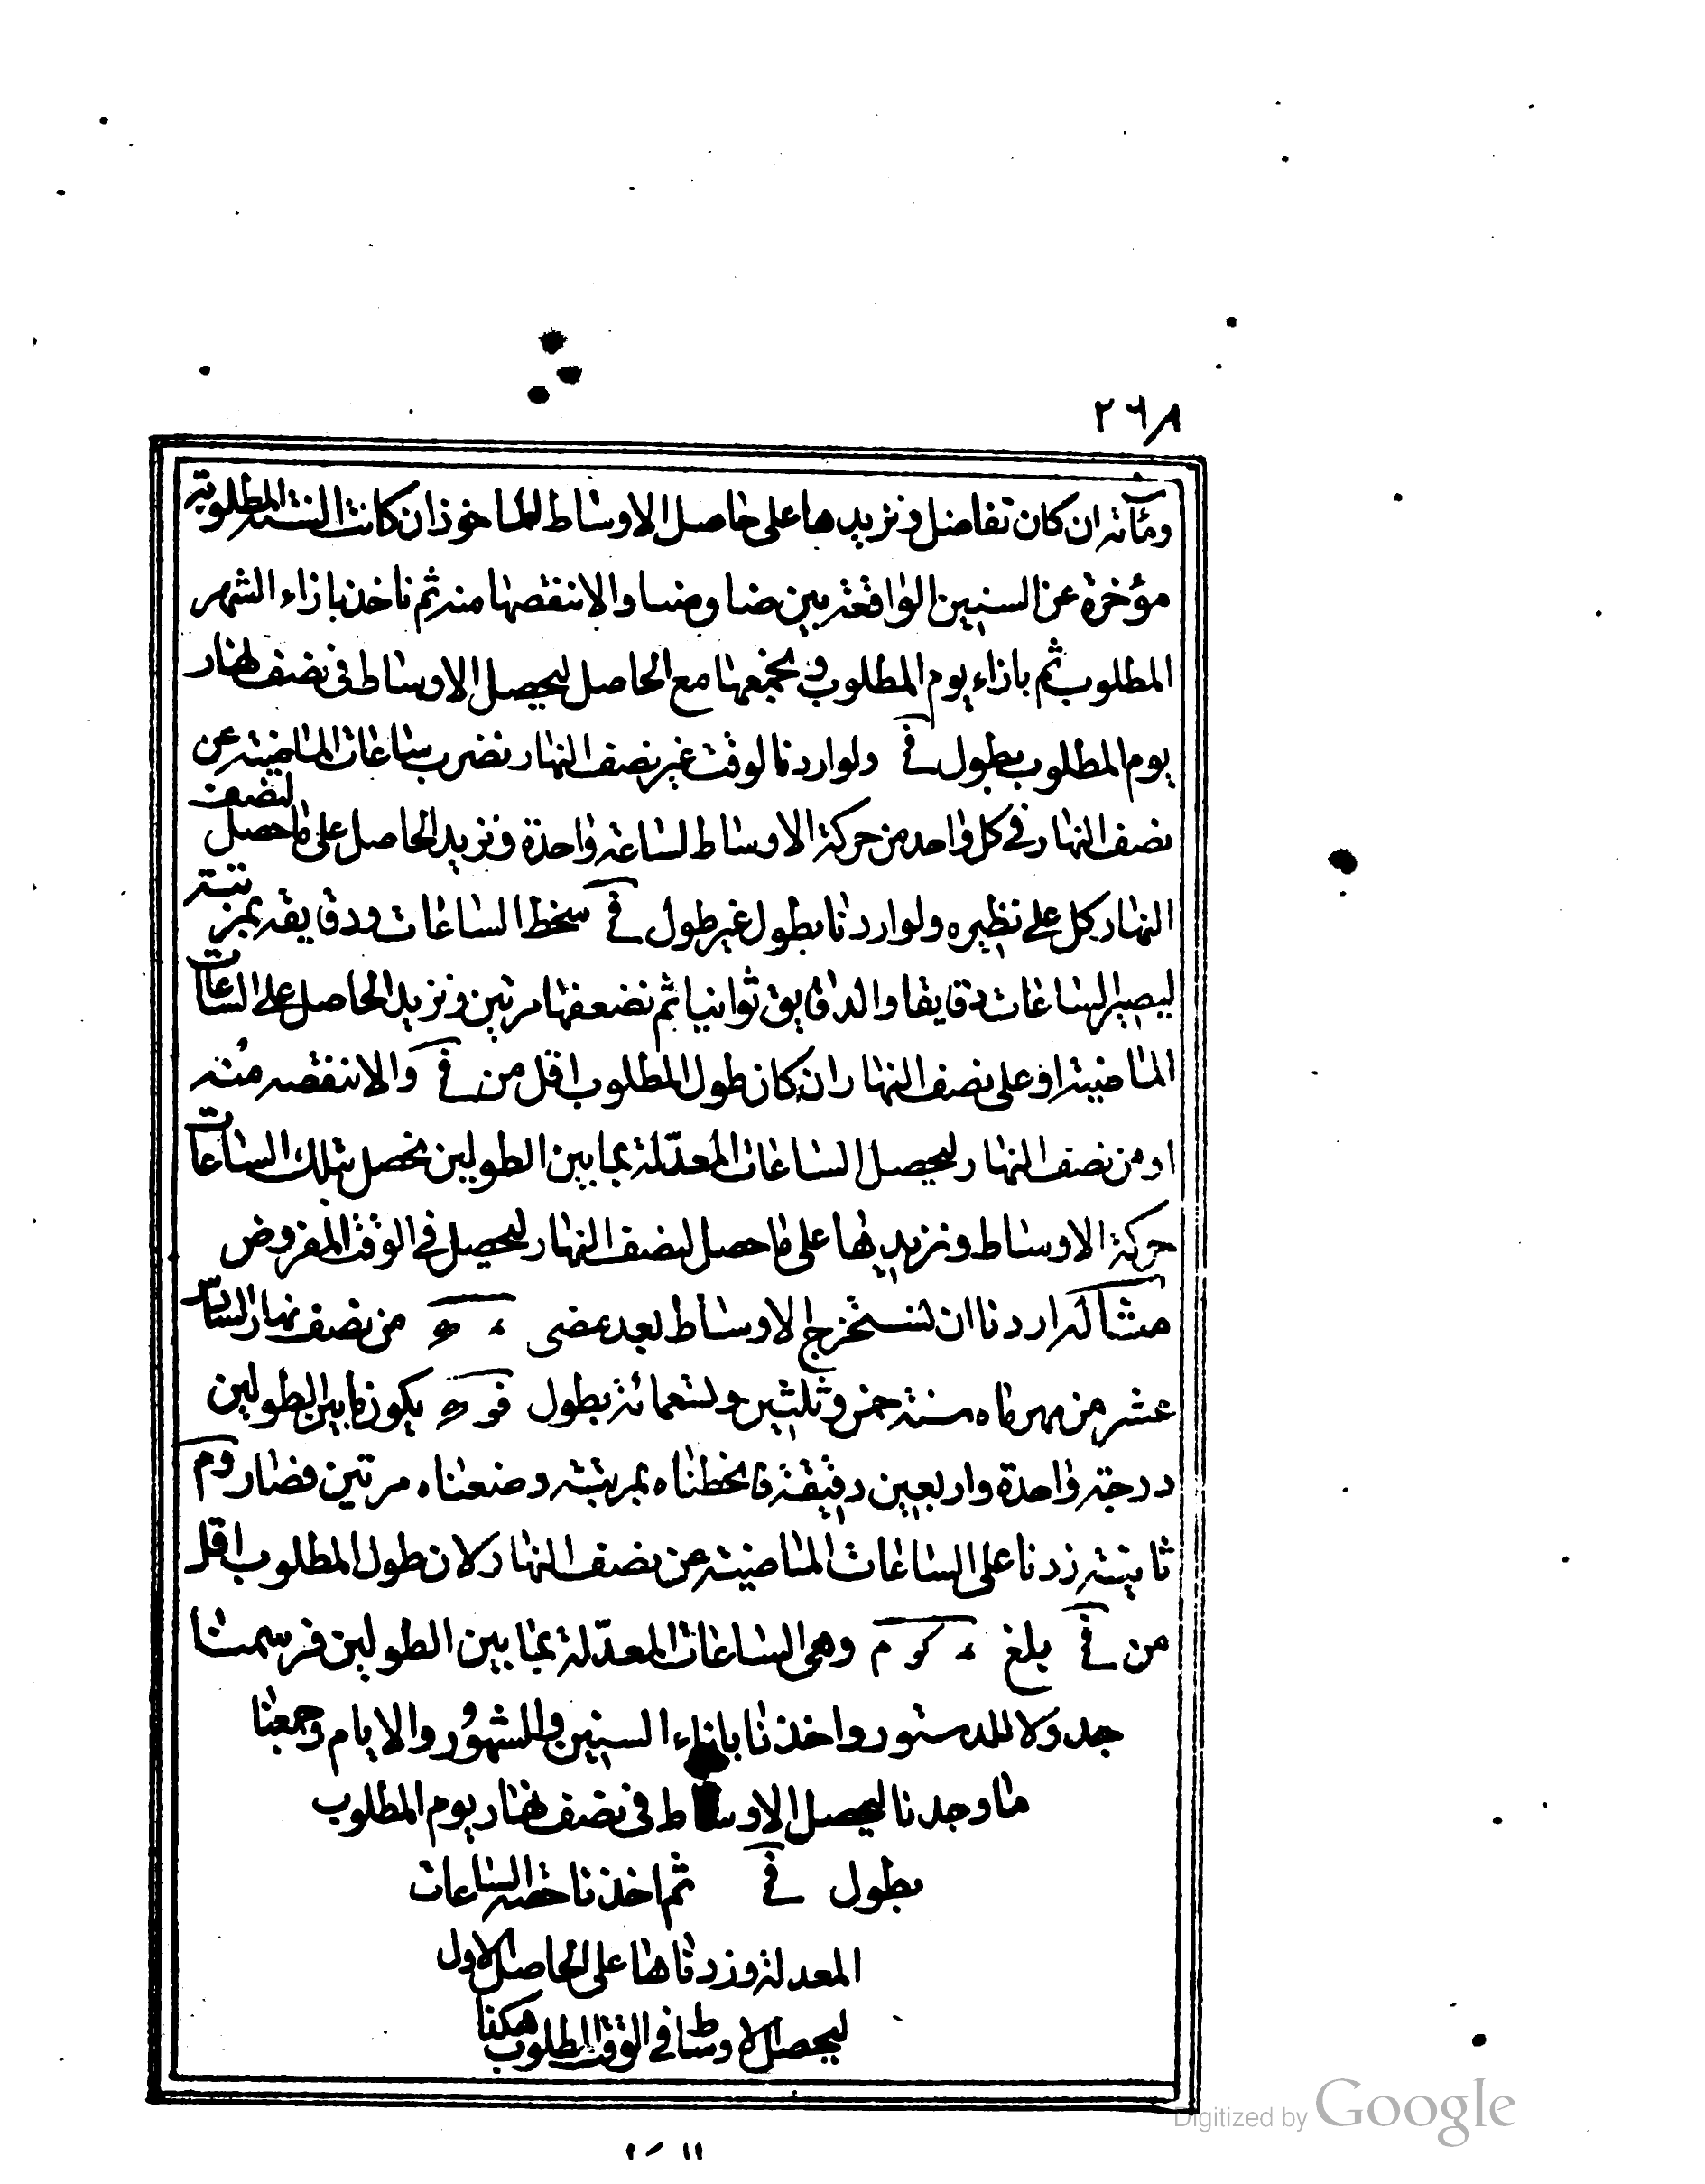 ٢٦٨
ومأته ان كان تفاضل ونزيدها على حاصل الاوساط الماخوذ ان كانت السنة المطلوبة
مؤخرة عن السنين الواقعة بين ضا وضسا والا ننقصها منه ثم ناخذ بازاء الشهر
المطلوب ثم بازاء يوم المطلوب ونجمعها مع الحاصل ليحصل الاوساط فى نصف نهار
يوم المطلوب بطول في ولو اردنا لوقت غير نصف النهار نضرب ساعات الماضية عن
نصف النهار فى كل واحد من حركة الاوساط لساعة واحدة ونزيد الحاصل على ما حصل لنصف
النهار كل على نظيره ولو اردنا بطول غير طول في نحط الساعات ودقايقه بمرتبة
ليصير الساعات دقايقا والدقايق ثوانيا ثم نضعفها مرتين ونزيد الحاصل على الساعات
الماضية او على نصف النهار ان كان طول المطلوب اقل من في والا ننقصه منه
او من نصف النهار ليحصل الساعات المعدّلة بما بين الطولين نحصل بتلك الساعات
حركة الاوساط ونزيدها على ما حصل لنصف النهار ليحصل فى الوقت المفروض
مثاله اردنا ان نستخرج الاوساط بعد مضى من نصف نهار السادس
عشر من مهرماه سنة خمس وثلثين وتسعمائة بطول يكون ما بين الطولين
درجة واحدة واربعين دقيقة فانحطناه بمرتبة وضعفناه مرتين فصار و م
ثانية زدنا على الساعات الماضية عن نصف النهار لان طول المطلوب اقل
من في بلغ كو م وهى الساعات المعدّلة بما بين الطولين فرسمنا
جدولا للدستور واخذنا بازاء السنين والشهور والايام وجمعنا
ما وجدنا ليحصل الاوساط فى نصف نهار يوم المطلوب
بطول في ثم اخذنا حصة الساعات
المعدلة وزدناها على الحاصل الاول
ليحصل الاوساط فى الوقت المطلوب هكذا
Digitized by Google